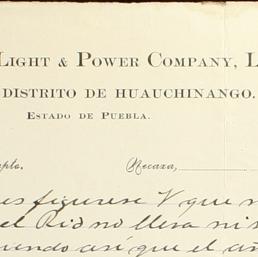 Light & Power Company, L
DISTRITO DE HUAUCHINANGO.
Estado de Puebla.
mpto. Necaxa,
es figurese V que n
el Rio no lleva ni
iendo así que el añ